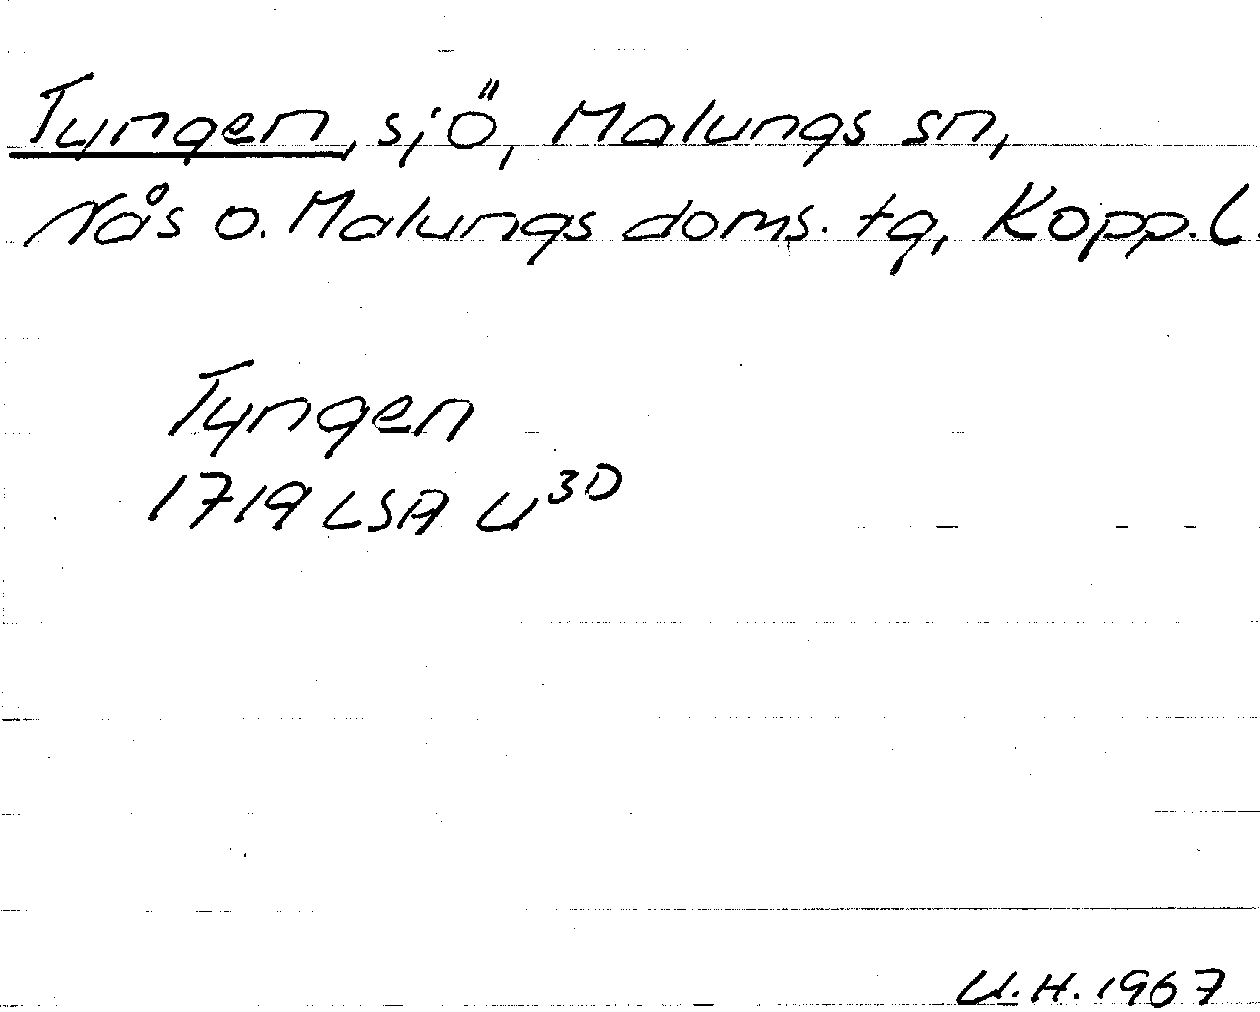 Tyngen, sjö, Malungs sn,
Nås o. Malungs doms. tg, Kopp. l.
Tyngen
1719 LSA U³⁰
U.H. 1967